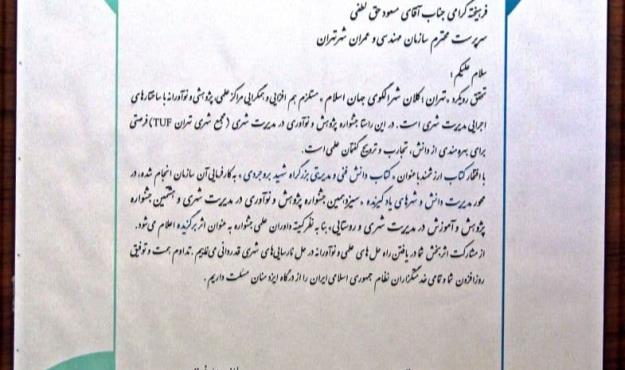 فرهیخته گرامی جناب آقای مسعود حق لطفی
سرپرست محترم سازمان مهندسی و عمران شهر تهران
سلام علیکم؛
تحقق رویکرد «تهران؛ کلان شهر الگوی جهان اسلام» مستلزم هم افزایی و همگرایی مراکز علمی، پژوهشی و نوآورانه با ساختارهای
اجرایی مدیریت شهری است. در این راستا جشنواره پژوهش و نوآوری در مدیریت شهری (مجمع شهری تهران TUF) فرصتی
برای بهره مندی از دانش، تجارب و ترویج گفتمان علمی است.
با افتخار کتاب ارزشمند با عنوان «کتاب دانش فنی و مدیریتی بزرگراه شهید بروجردی» به کارفرمایی آن سازمان انجام شده، در
محور مدیریت دانش و شهرهای یادگیرنده «سیزدهمین جشنواره پژوهش و نوآوری در مدیریت شهری و هشتمین جشنواره
پژوهش و آموزش در مدیریت شهری و روستایی» بنا به نظر کمیته داوران علمی جشنواره به عنوان اثر برگزیده اعلام می‌شود.
از مشارکت اثربخش شما در یافتن راه حل های علمی و نوآورانه در حل نارسایی‌های شهری قدردانی می‌نماییم. تداوم همت و توفیق
روزافزون شما و تمامی خدمتگزاران نظام جمهوری اسلامی ایران را از درگاه ایزد منان مسئلت داریم.